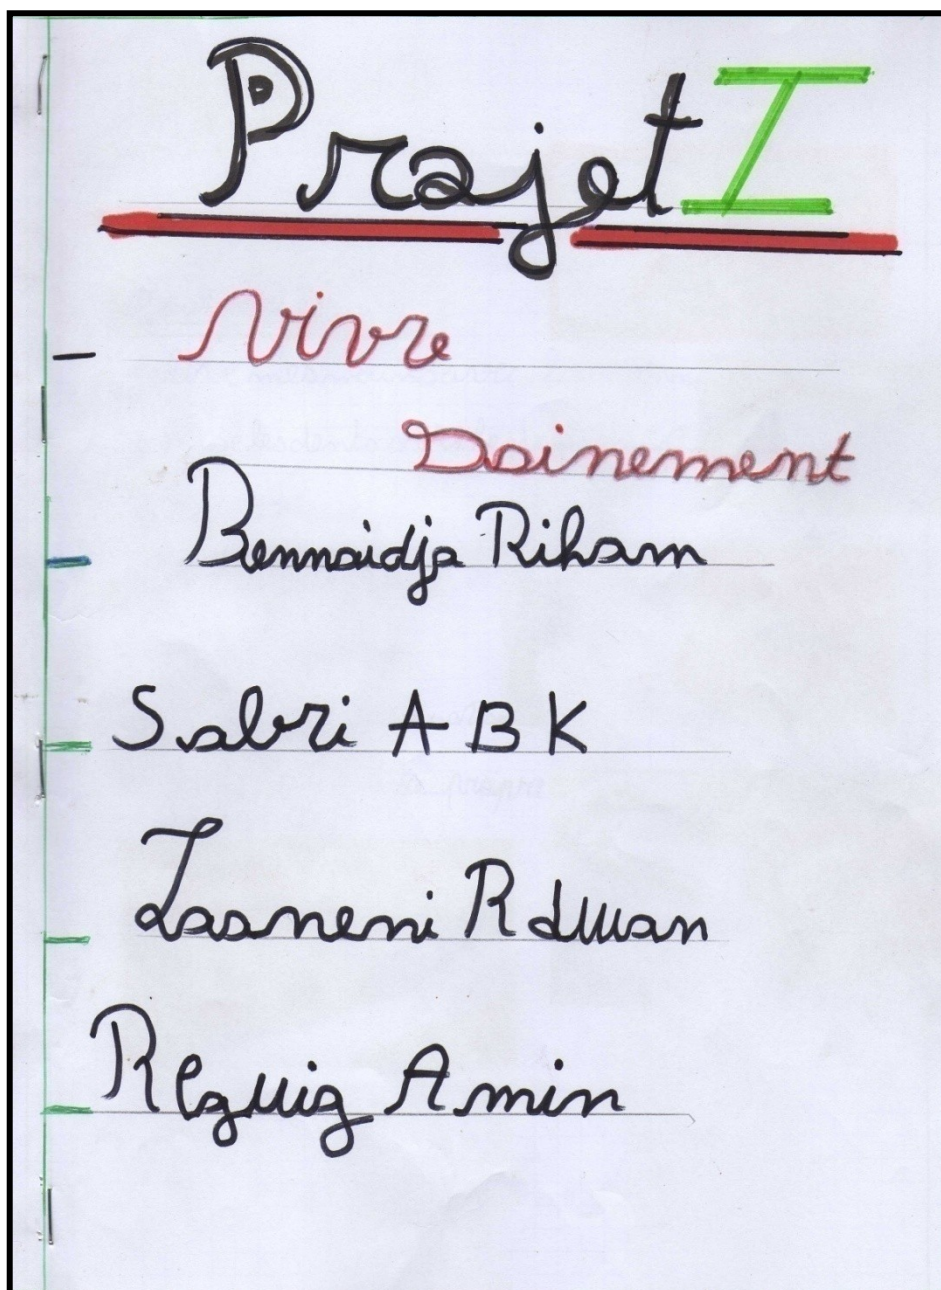 Projet I
Vivre
Sainement
Bennaidja Riham
Sabri A B K
Laaneni Rdwan
Rezuig Amin